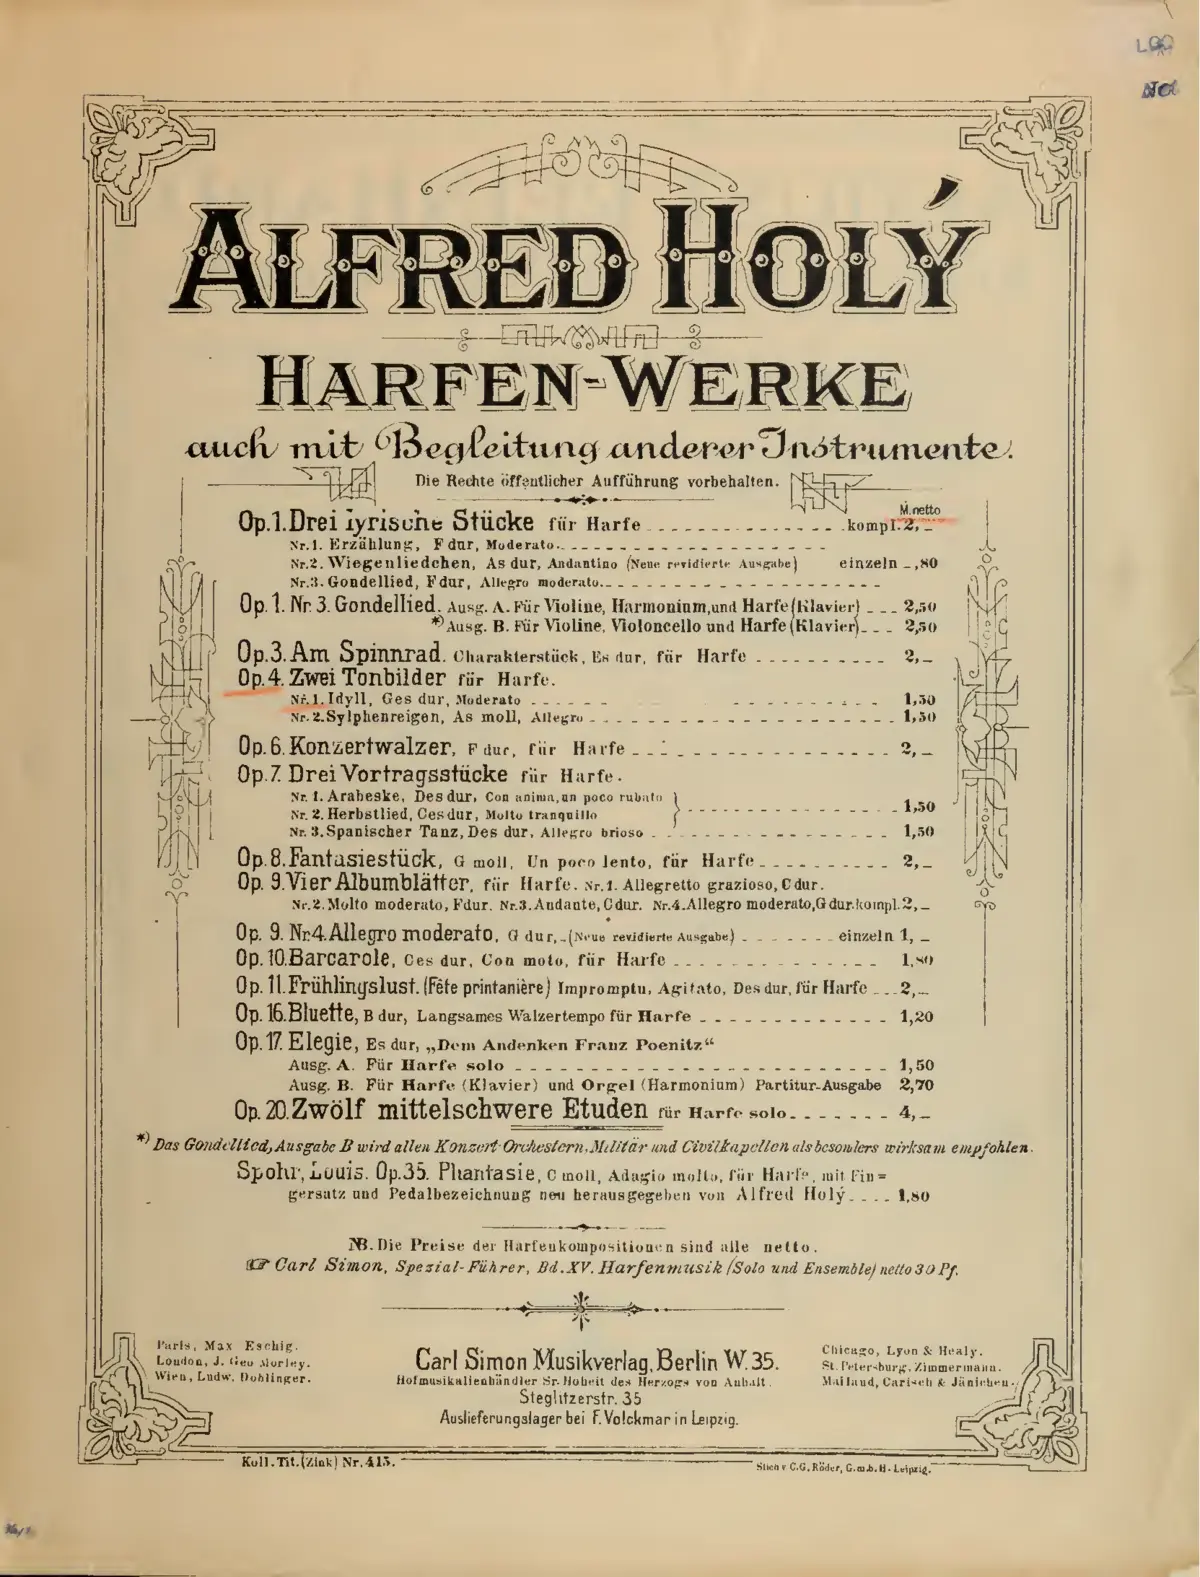 LOO
ALFRED HOLÝ
HARFEN-WERKE
auch mit Begleitung anderer Instrumente.
Die Rechte öffentlicher Aufführung vorbehalten.
M. netto
Op.1. Drei lyrische Stücke für Harfe kompl. 2,–
Nr.1. Erzählung, F dur, Moderato.
Nr.2. Wiegenliedchen, As dur, Andantino (Neue revidierte Ausgabe) einzeln –,80
Nr.3. Gondellied, F dur, Allegro moderato.
Op.1. Nr. 3. Gondellied. Ausg. A. Für Violine, Harmonium, und Harfe (Klavier) 2,50
*) Ausg. B. Für Violine, Violoncello und Harfe (Klavier) 2,50
Op.3. Am Spinnrad. Charakterstück, Es dur, für Harfe 2,–
Op.4. Zwei Tonbilder für Harfe.
Nr.1. Idyll, Ges dur, Moderato 1,50
Nr.2. Sylphenreigen, As moll, Allegro 1,50
Op.6. Konzertwalzer, F dur, für Harfe 2,–
Op.7. Drei Vortragsstücke für Harfe.
Nr.1. Arabeske, Des dur, Con anima, un poco rubato
Nr.2. Herbstlied, Ces dur, Molto tranquillo 1,50
Nr.3. Spanischer Tanz, Des dur, Allegro brioso 1,50
Op.8. Fantasiestück, G moll, Un poco lento, für Harfe 2,–
Op. 9. Vier Albumblätter, für Harfe. Nr.1. Allegretto grazioso, C dur.
Nr.2. Molto moderato, F dur. Nr.3. Andante, C dur. Nr.4. Allegro moderato, G dur. kompl. 2,–
Op. 9. Nr.4. Allegro moderato, G dur, (Neue revidierte Ausgabe) einzeln 1,–
Op.10. Barcarole, Ces dur, Con moto, für Harfe 1,80
Op.11. Frühlingslust. (Fête printanière) Impromptu, Agitato, Des dur, für Harfe 2,–
Op.16. Bluette, B dur, Langsames Walzertempo für Harfe 1,20
Op.17. Elegie, Es dur, „Dem Andenken Franz Poenitz“
Ausg. A. Für Harfe solo 1,50
Ausg. B. Für Harfe (Klavier) und Orgel (Harmonium) Partitur-Ausgabe 2,70
Op.20. Zwölf mittelschwere Etuden für Harfe solo 4,–
*) Das Gondellied, Ausgabe B wird allen Konzert-Orchestern, Militär und Civilkapellen als besonders wirksam empfohlen.
Spohr, Louis. Op.35. Phantasie, C moll, Adagio molto, für Harfe, mit Fin=
gersatz und Pedalbezeichnung neu herausgegeben von Alfred Holý 1,80
NB. Die Preise der Harfenkompositionen sind alle netto.
☞ Carl Simon, Spezial-Führer, Bd. XV. Harfenmusik (Solo und Ensemble) netto 30 Pf.
Paris, Max Eschig.
London, J. Geo Morley.
Wien, Ludw. Doblinger.
Carl Simon Musikverlag, Berlin W. 35.
Hofmusikalienhändler Sr. Hoheit des Herzogs von Anhalt.
Steglitzerstr. 35
Auslieferungslager bei F. Volckmar in Leipzig.
Chicago, Lyon & Healy.
St. Petersburg, Zimmermann.
Mailand, Carisch & Jänichen.
Koll. Tit. (Zink) Nr. 415.
Stich v C.G. Röder, G.m.b.H. Leipzig.